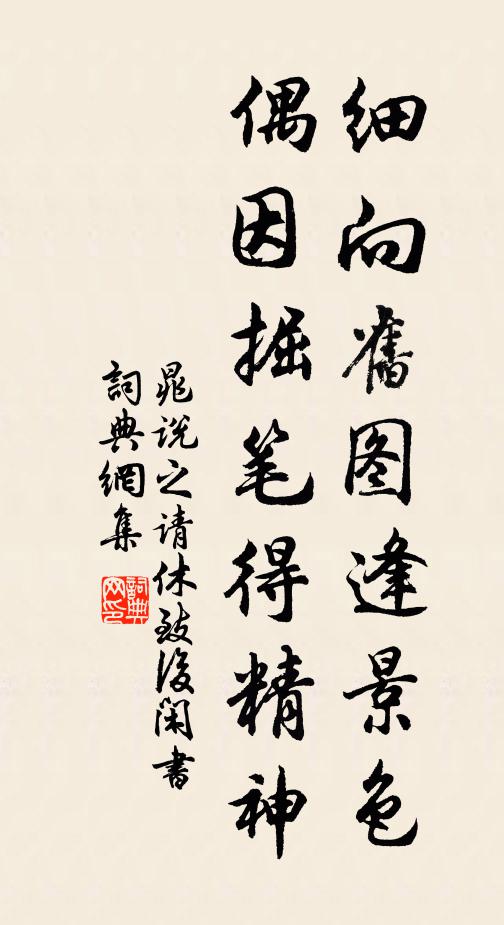 细向舊图逢景色
偶因掘笔得精神
晁说之请休致後闲書
詞典網集
詞典
网印